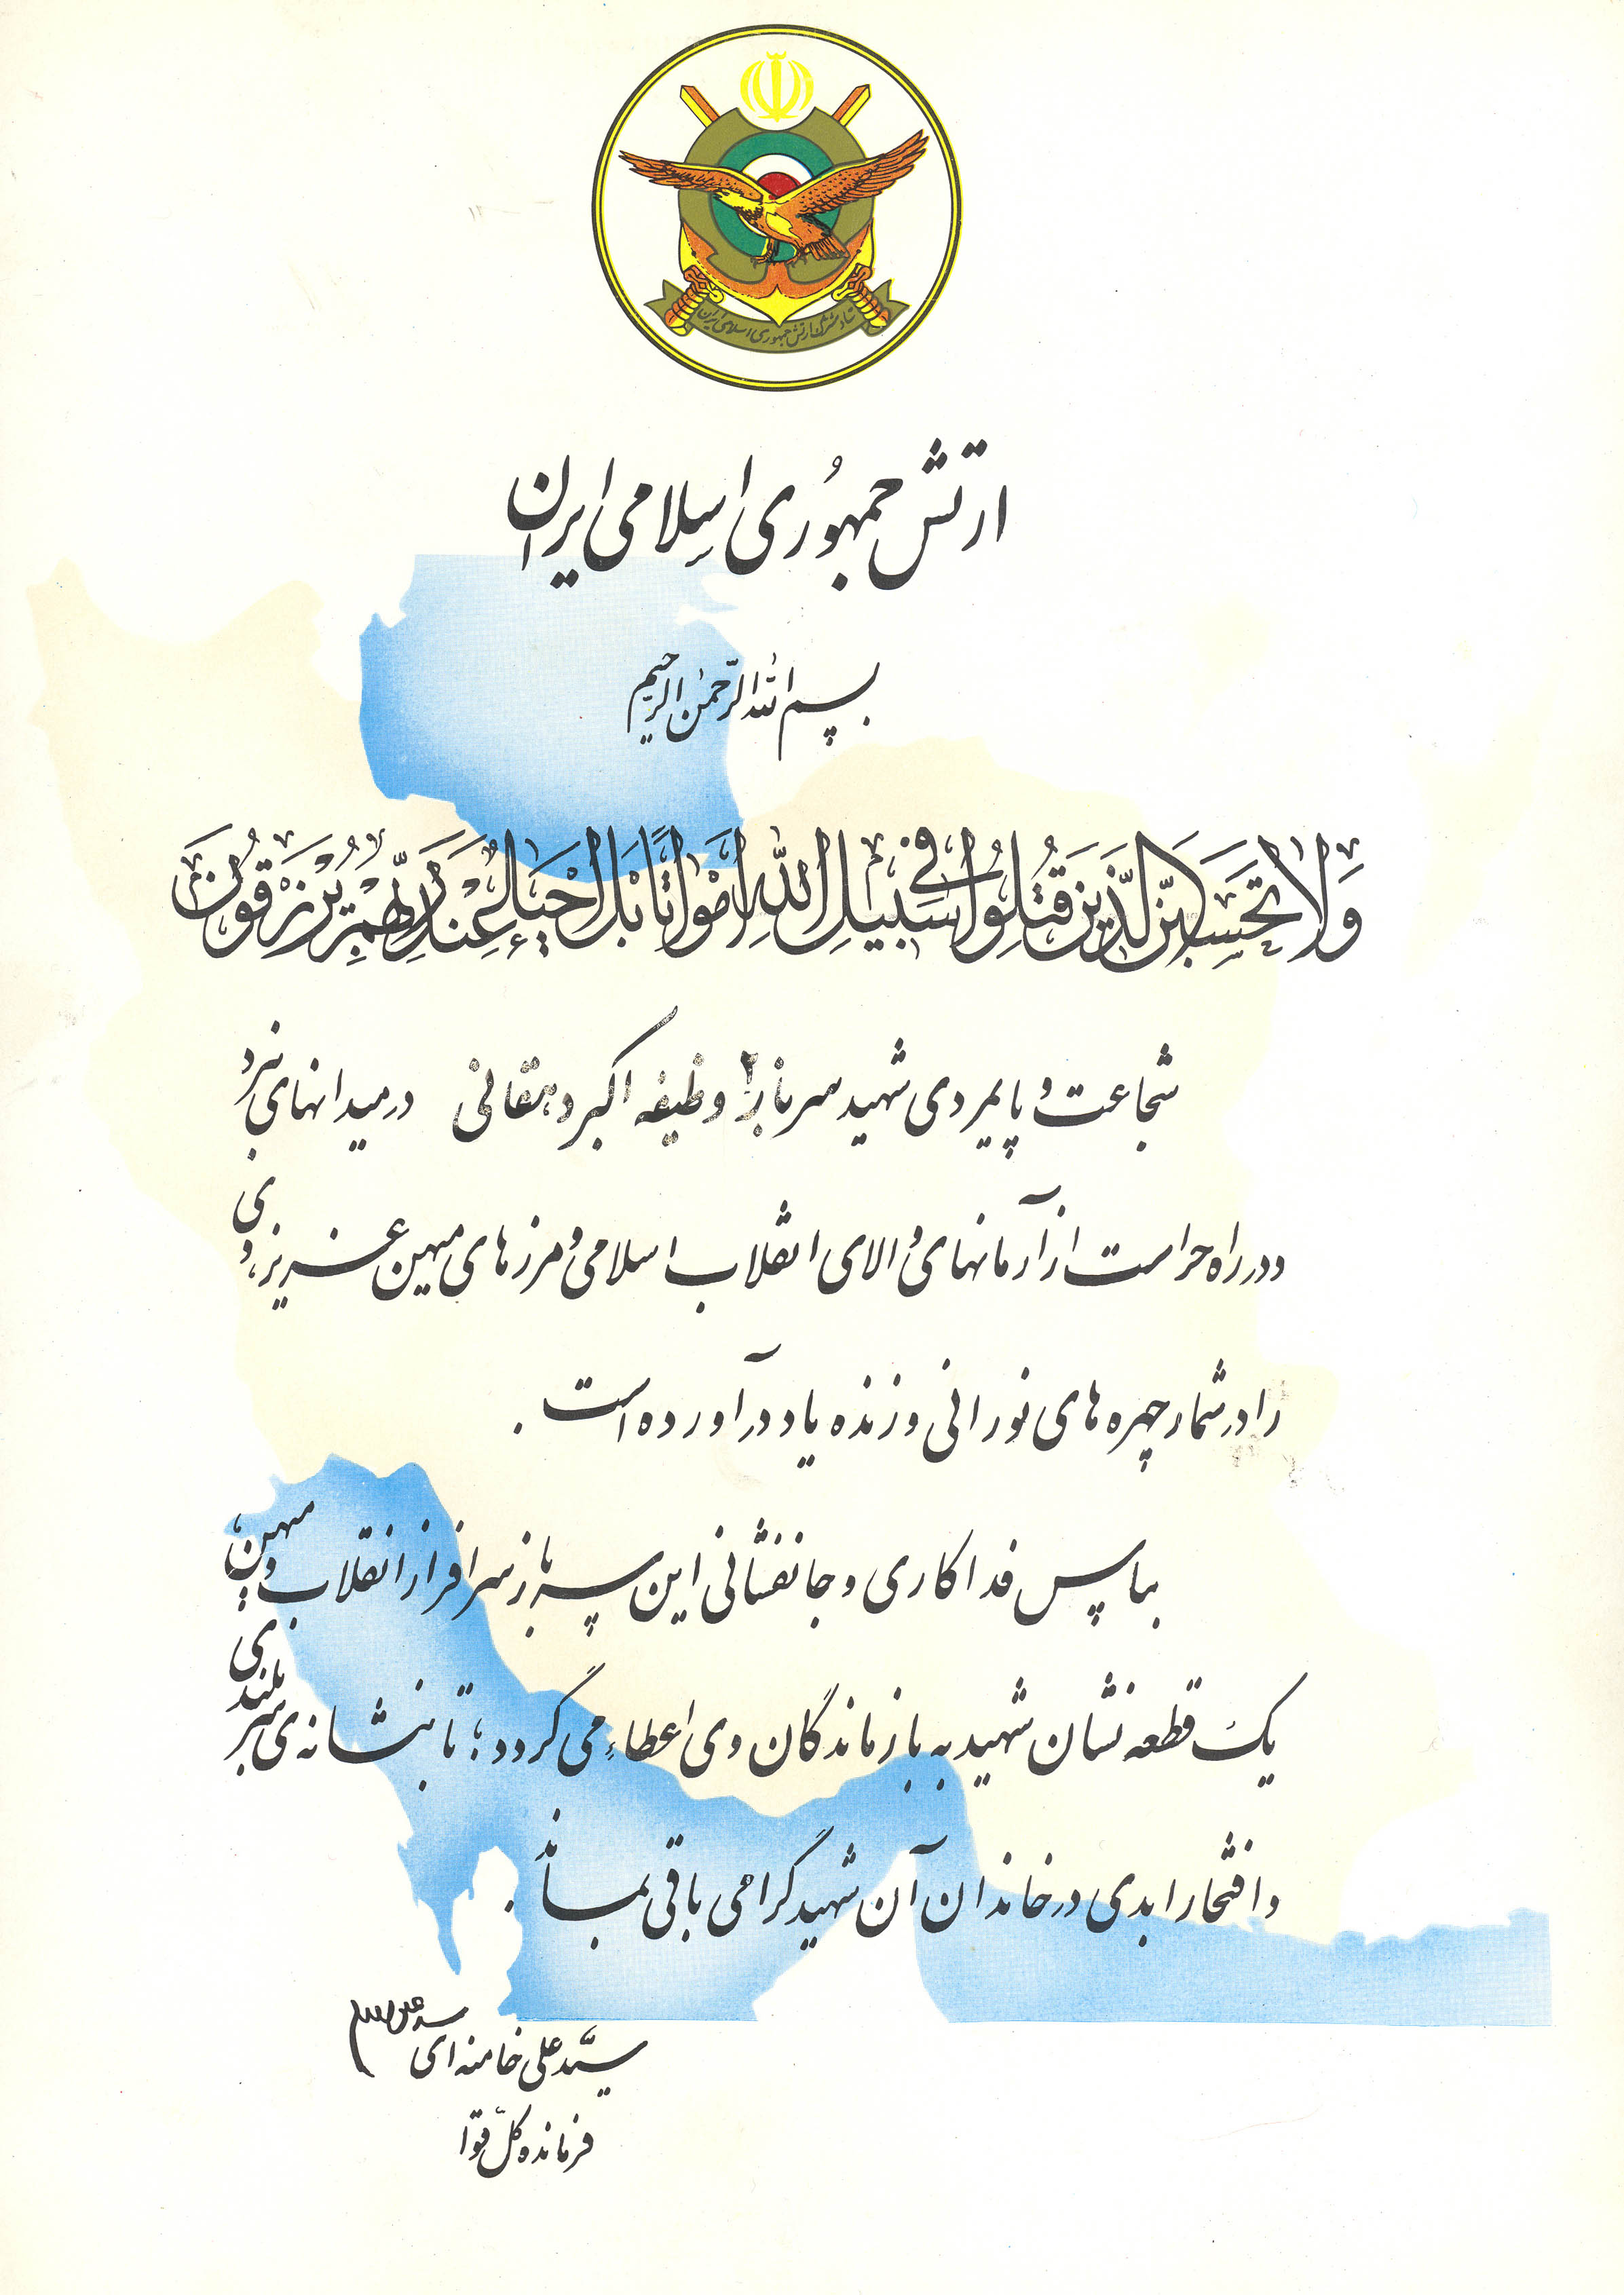 ستاد مشترک ارتش جمهوری اسلامی ایران
ارتش جمهوری اسلامی ایران
بسم الله الرحمن الرحیم
وَلا تَحْسَبَنَّ الَّذینَ قُتِلُوا فی سَبیلِ اللهِ اَمْواتًا بَلْ اَحْیاءٌ عِنْدَ رَبِّهِمْ یُرْزَقُونَ
شجاعت و پایمردی شهید سرباز وظیفه اکبر دهقانی در میدانهای نبرد
و در راه حراست از آرمانهای والای انقلاب اسلامی و مرزهای میهن عزیز، وی
را در شمار چهره های نورانی و زنده یاد در آورده است.
بپاس فداکاری و جانفشانی این سرباز سرافراز انقلاب و میهن،
یک قطعه نشان شهید به بازماندگان وی اعطاء می گردد؛ تا بنشانه ی سربلندی
و افتخار ابدی در خاندان آن شهید گرامی باقی بماند.
سیّد علی خامنه ای
فرمانده کلّ قوا